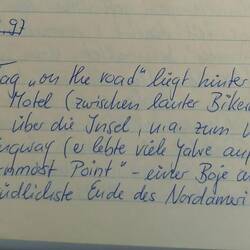 .97
Tag „on the road" liegt hinter
Motel (zwischen lauter Biker
über die Insel, u.a. zum
ingway (er lebte viele Jahre auf
ernmost Point" - einer Boje a
üdlichste Ende des Nordameri